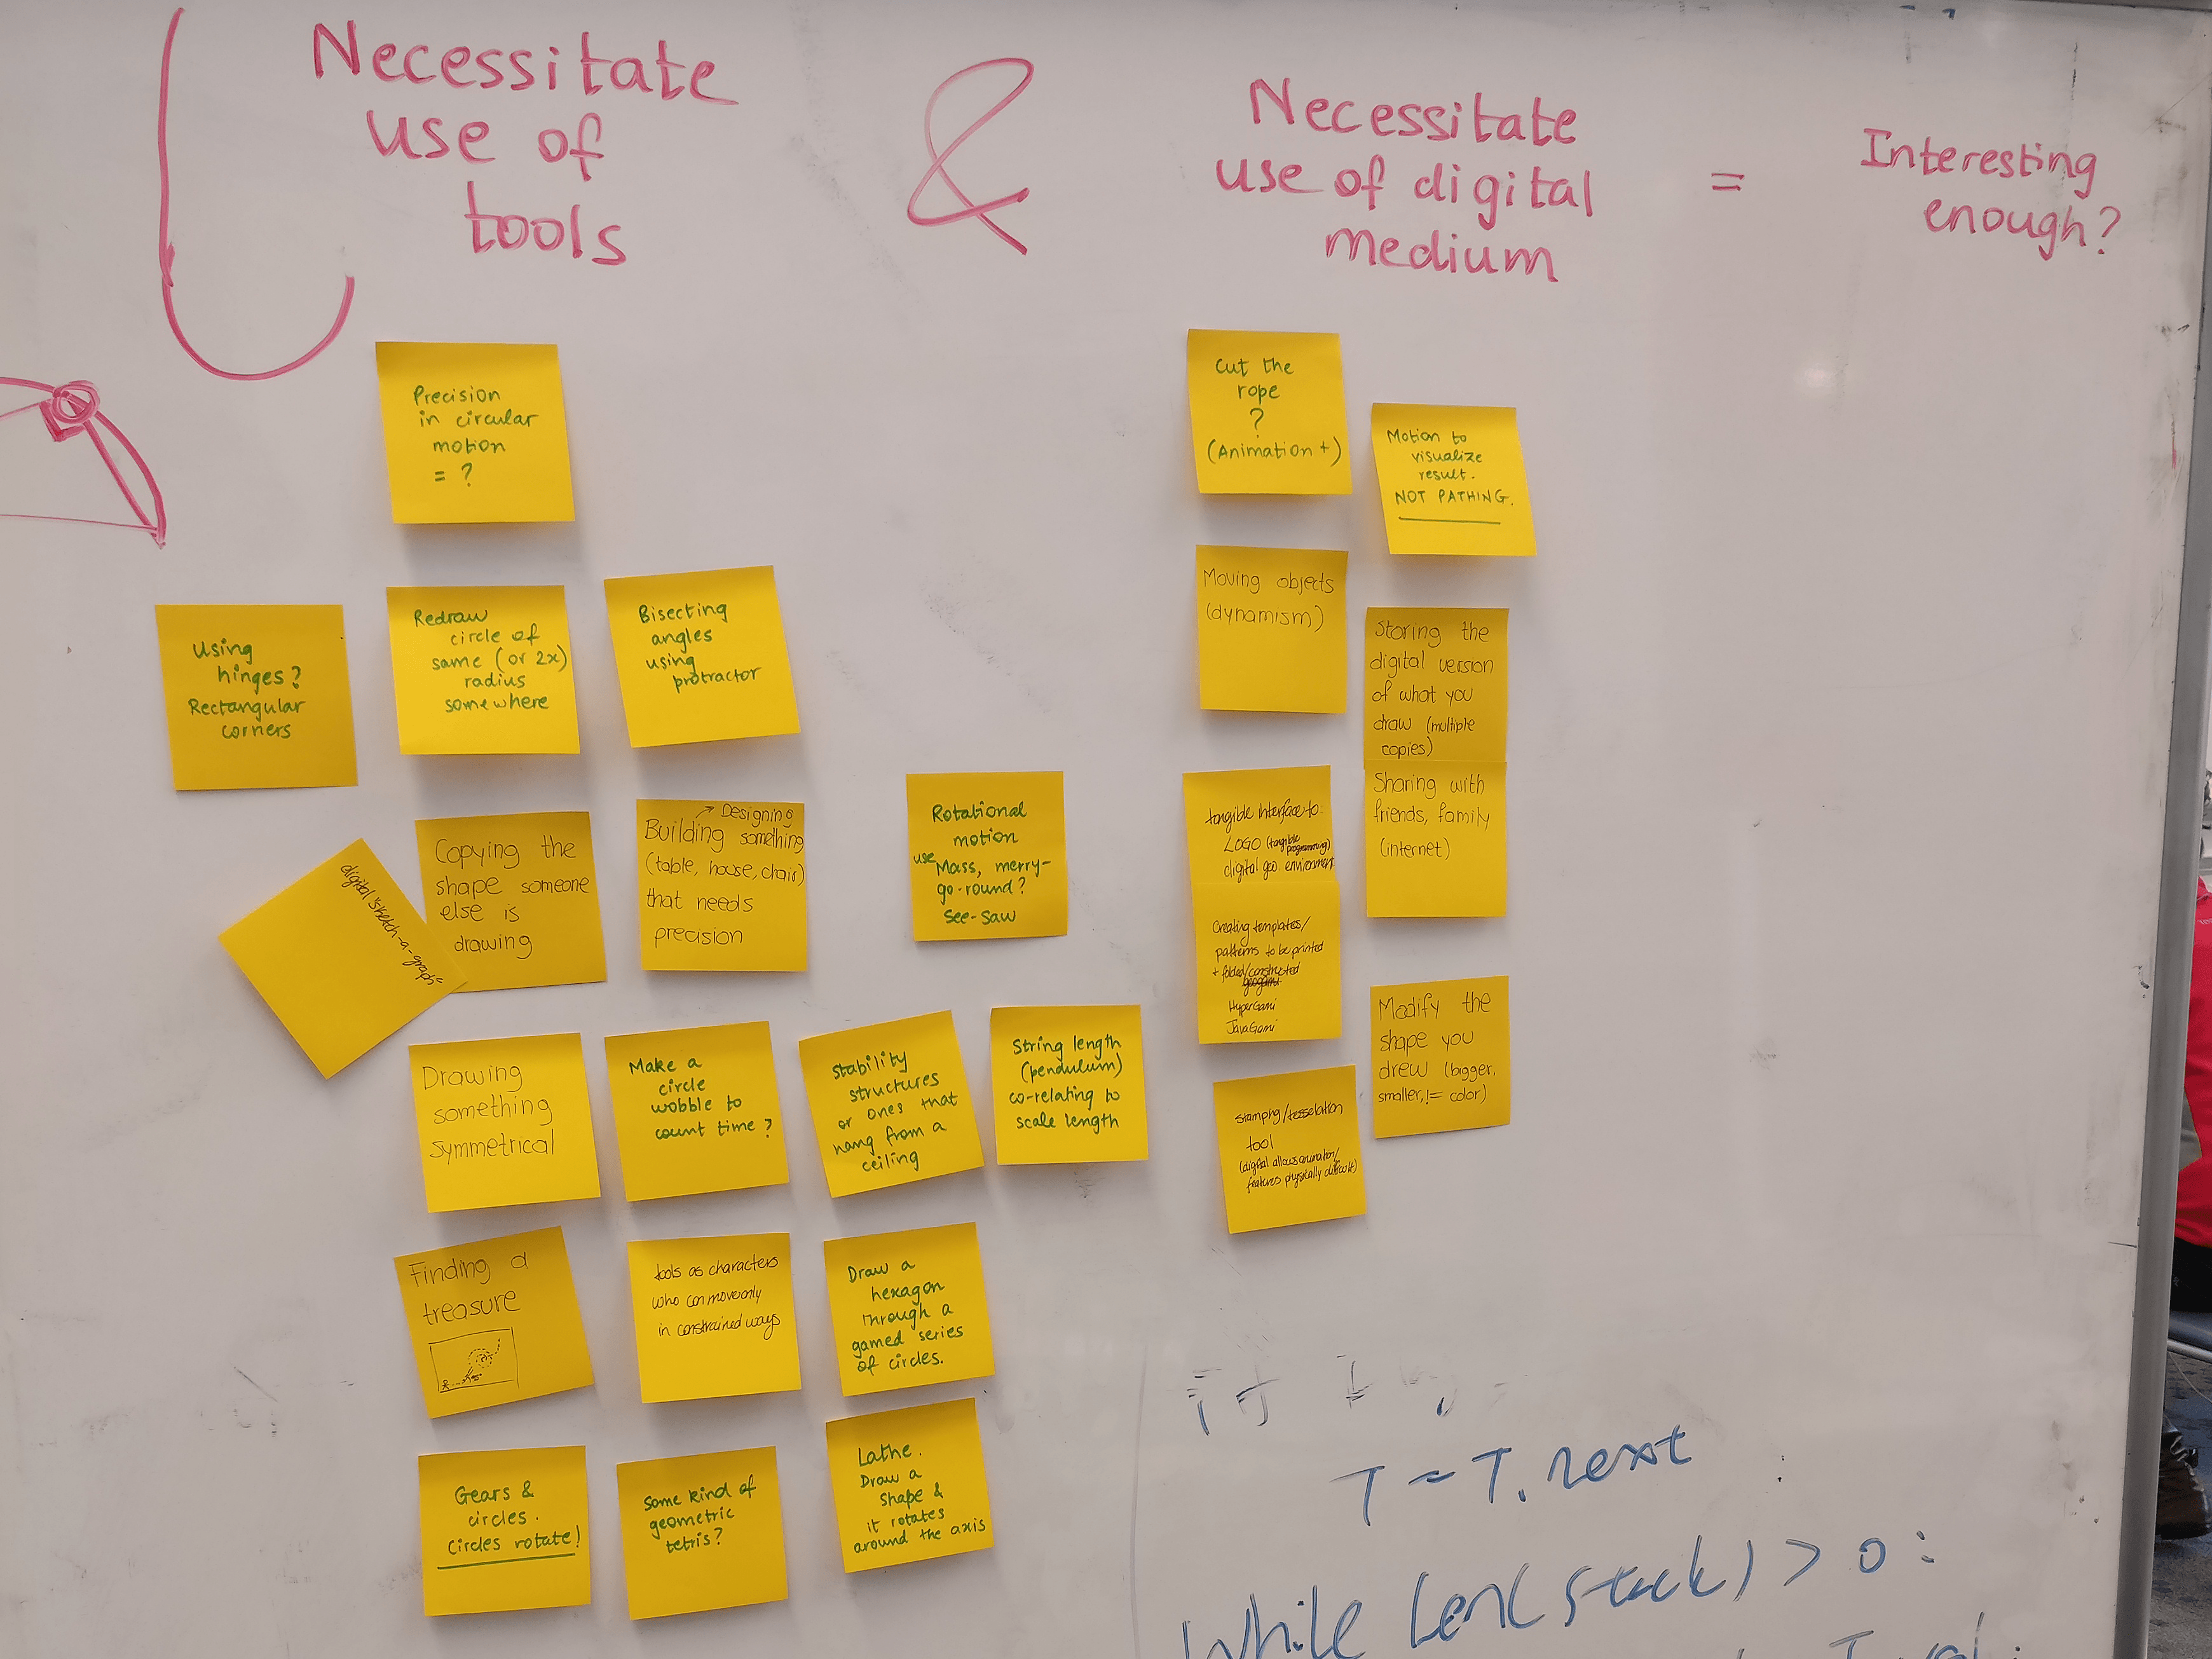 Necessitate
use of
tools
&
Necessitate
use of digital
medium
=
Interesting
enough?
Precision
in circular
motion
= ?
Using
hinges?
Rectangular
corners
Redraw
circle of
same (or 2x)
radius
somewhere
Bisecting
angles
using
protractor
digital sketch-a-graph
Copying the
shape someone
else is
drawing
→ Designing
Building something
(table, house, chair)
that needs
precision
Rotational
motion
use Mass, merry-
go-round?
See-saw
Drawing
something
symmetrical
Make a
circle
wobble to
count time?
Stability
structures
or ones that
hang from a
ceiling
String length
(pendulum)
co-relating to
scale length
Finding a
treasure
tools as characters
who can move only
in constrained ways
Draw a
hexagon
through a
gamed series
of circles.
Gears &
circles.
Circles rotate!
Some kind of
geometric
tetris?
Lathe.
Draw a
shape &
it rotates
around the axis
Cut the
rope
?
(Animation +)
Motion to
visualize
result.
NOT PATHING.
Moving objects
(dynamism)
Storing the
digital version
of what you
draw (multiple
copies)
Sharing with
friends, family
(internet)
tangible interface to:
LOGO (tangible
programming)
digital geo environment
Creating templates/
patterns to be printed
+ folded/constructed
HyperGami
JavaGami
Modify the
shape you
drew (bigger,
smaller, != color)
stamping/tesselation
tool
(digital allows animation/
features physically difficult)
T = T.next
While len(stack) > 0: